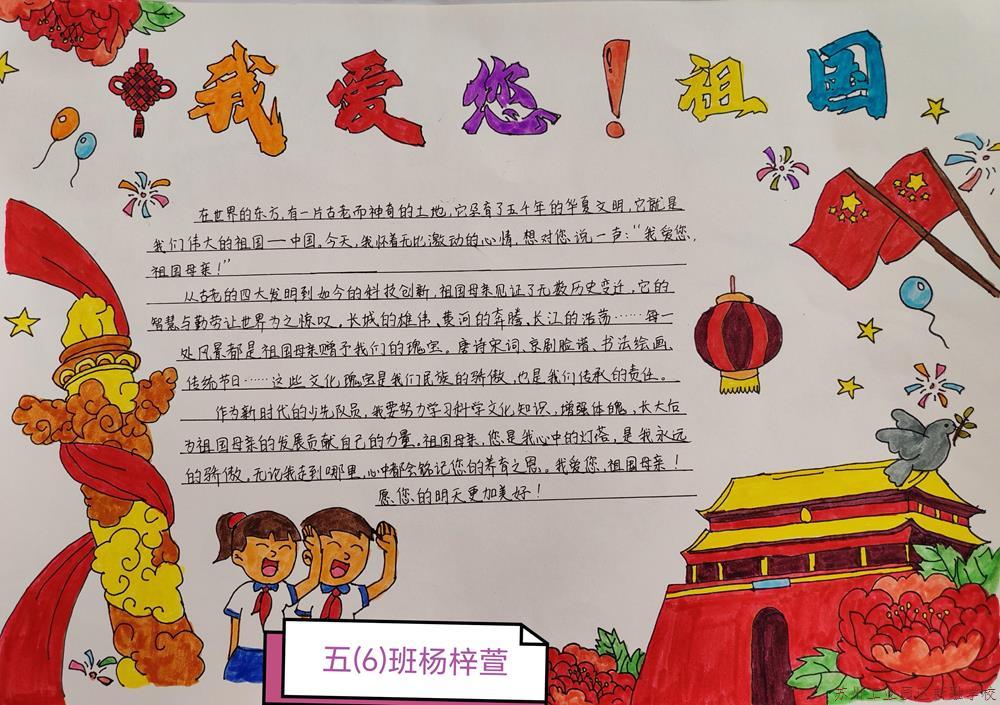 我爱您!祖国
在世界的东方,有一片古老而神奇的土地,它孕育了五千年的华夏文明,它就是
我们伟大的祖国——中国。今天,我怀着无比激动的心情,想对您说一声:“我爱您,
祖国母亲!”
从古老的四大发明到如今的科技创新,祖国母亲见证了无数历史变迁,它的
智慧与勤劳让世界为之惊叹。长城的雄伟、黄河的奔腾、长江的浩荡……每一
处风景都是祖国母亲赠予我们的瑰宝。唐诗宋词、京剧脸谱、书法绘画、
传统节日……这些文化瑰宝是我们民族的骄傲,也是我们传承的责任。
作为新时代的少先队员,我要努力学习科学文化知识,增强体魄,长大后
为祖国母亲的发展贡献自己的力量。祖国母亲,您是我心中的灯塔,是我永远
的骄傲,无论我走到哪里,心中都会铭记您的养育之恩。我爱您,祖国母亲!
愿您的明天更加美好!
五(6)班杨梓萱